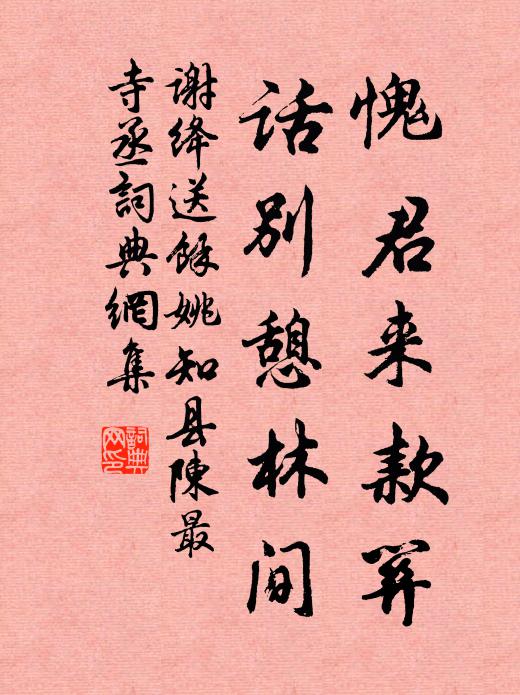 愧君来款關
话别憩林间
谢绛送餘姚知县陳最
寺丞詞典網集
詞典网印